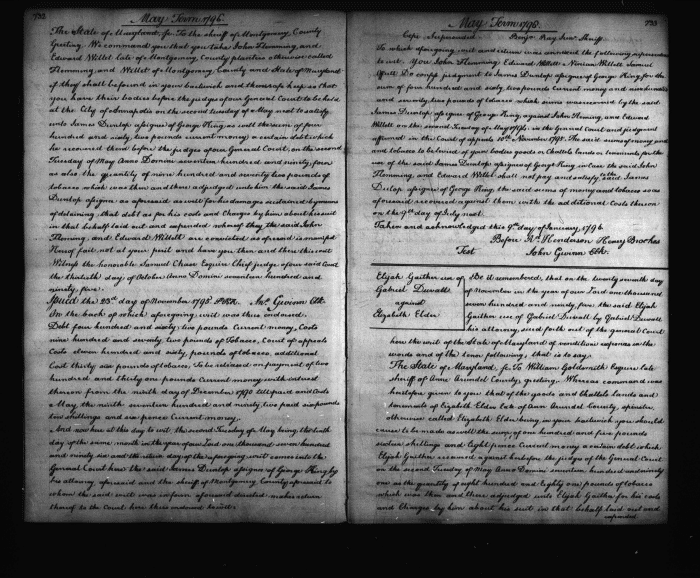 732
May Term 1796.
The State of Maryland, fs. To the sheriff of Montgomery County
Greeting. We command you that you take John Flemming, and
Edward Willet late of Montgomery County planters otherwise called
Flemming, and Willet of Montgomery County and State of Maryland
if they shall be found in your bailiwick and them safe keep so that
you have their bodies before the judges of our General Court to be held
at the City of Annapolis on the second tuesday of May next to satisfy
unto James Dunlop assignee of George King, as well the sum of four
hundred and sixty two pounds current money a certain debt which
he recovered there before the judges of our General Court, on the second
Tuesday of May Anno Domini seventeen hundred and ninety four
as also the quantity of nine hundred and seventy two pounds of
tobacco which was then and there adjudged unto him the said James
Dunlop assignee as aforesaid as well for his damages sustained by means
of detaining that debt as for his costs and Charges by him about his suit
in that behalf laid out and expended whereof they the said John
Flemming, and Edward Willet are convicted as of record is manifest
Hereof fail not at your peril and have you then and there this writ
Witness the honorable Samuel Chase Esquire Chief judge of our said Court
the thirtieth day of October Anno Domini seventeen hundred and
ninety five.
Issued the 23d day of November 1795 Jno. Gwinn Clk.
On the back of which aforegoing writ was thus endorsed.
Debt four hundred and sixty two pounds Current money, Costs
nine hundred and seventy two pounds of Tobacco, Court of appeals
Costs eleven hundred and sixty pounds of tobacco, additional
Cost thirty six pounds of tobacco. To be released on payment of two
hundred and thirty one pounds Current money with interest
thereon from the ninth day of December 1790 till paid and Costs
May the ninth seventeen hundred and ninety two paid six pounds
two shillings and six pence Current money.
And now here at this day to wit the second Tuesday of May being the tenth
day of the same month in the year of our Lord one thousand seven hundred
and ninety six and the return day of the aforegoing writ comes into the
General Court here the said James Dunlop assignee of George King by
his attorney aforesaid and the sheriff of Montgomery County aforesaid to
whom the said writ was in form aforesaid directed makes return
thereof to the Court here thus endorsed to wit.
May Term 1796.
733
Cepi Superseded. Benjn. Ray Junr. Sheriff
To which aforegoing writ and return was annexed the following supersedeas
to wit. You John Flemming Edward Willett Ninian Willett Samuel
Do confess judgment to James Dunlop assignee of George King for the
sum of four hundred and sixty two pounds current money and nine hundred
and seventy two pounds of tobacco which sums was recovered by the said
James Dunlop assignee of George King, against John Flemming, and Edward
Willett on the second Tuesday of May 1794 in the General Court and judgment
affirmed in the Court of appeals 10th November 1795. The said sums of money and
and tobacco to be levied of your bodies goods or Chattels lands or tenements for the
use of the said James Dunlop assignee of George King in case the said John
Flemming, and Edward Willet shall not pay and satisfy to the said James
Dunlop assignee of George King the said sums of money and tobacco so as
aforesaid recovered against them with the additional Costs thereon
on the 9th day of July next.
Taken and acknowledged this 9th day of January 1796
Before Rd. Henderson Henry Brookes
Test John Gwinn Clk.
Elijah Gaither use of
Gabriel Duvall
against
Elizabeth Elder
Be it remembered, that on the twenty seventh day
of November in the year of our Lord one thousand
seven hundred and ninety five the said Elijah
Gaither use of Gabriel Duvall by Gabriel Duvall
his attorney, sued forth out of the general Court
here the writ of the State of Maryland of venditioni exponas in the
words and of the tenor following, that is to say.
The State of Maryland, fs. To William Goldsmith Esquire late
sheriff of Anne Arundel County, greeting. Whereas command was
heretofore given to you that of the goods and Chattels Lands and
tenements of Elizabeth Elder late of Ann Arundel County, spinster,
otherwise called Elizabeth Elder being in your bailiwick you should
cause to be made as well the sum of one hundred and five pounds
sixteen shillings and eight pence Current money a certain debt which
Elijah Gaither recovered against her before the judges of the General Court
on the second Tuesday of May Anno Domini seventeen hundred and ninety
one as the quantity of eight hundred and eighty one pounds of tobacco
which was then and there adjudged unto Elijah Gaither for his costs
and Charges by him about his suit in that behalf laid out and
expended